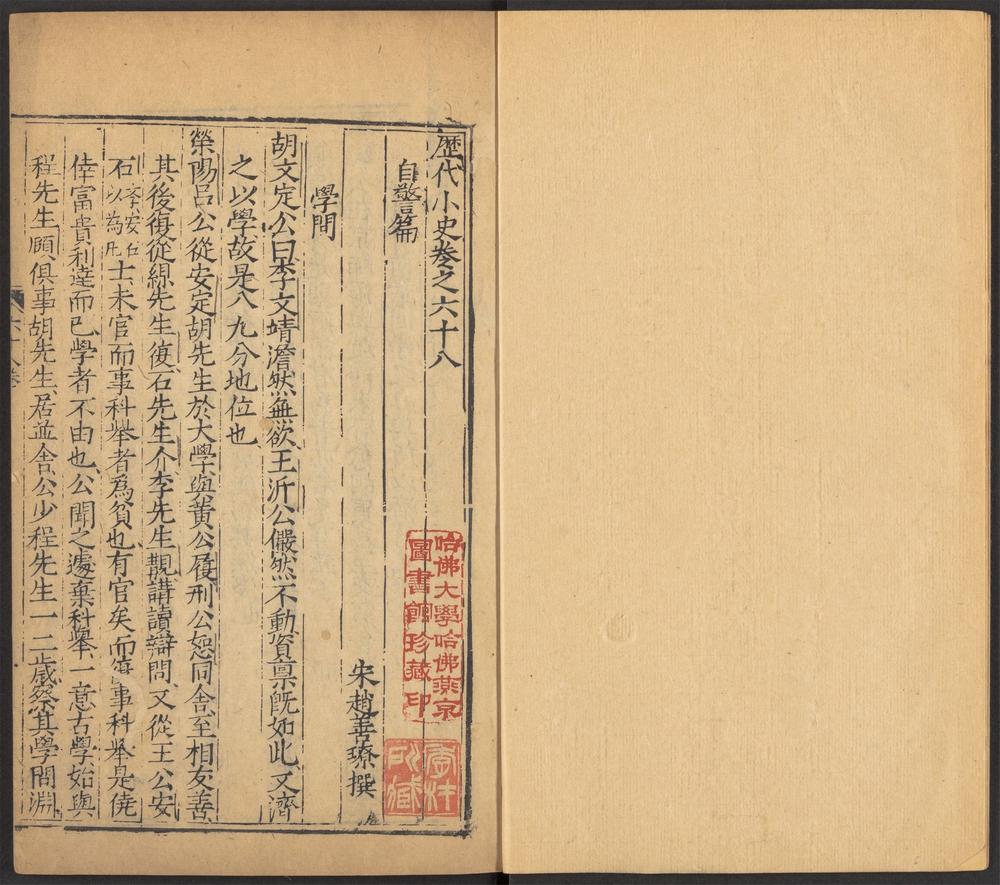 歷代小史卷之六十八
自警篇
宋趙善璙撰
學問
胡文定公曰李文靖澹然無欲王沂公儼然不動資稟旣如此又濟
之以學故是八九分地位也
榮陽呂公從安定胡先生於大學與黃公履刑公恕同舍至相友善
其後復從孫先生復石先生介李先生覯講讀辯問又從王公安
石李安石以為凡士未官而事科舉者爲貧也有官矣而復事科舉是僥
倖富貴利達而已學者不由也公聞之遽棄科舉一意古學始與
程先生頤俱事胡先生居並舍公少程先生一二歲察其學問淵
哈佛大學哈佛燕京
圖書館珍藏印